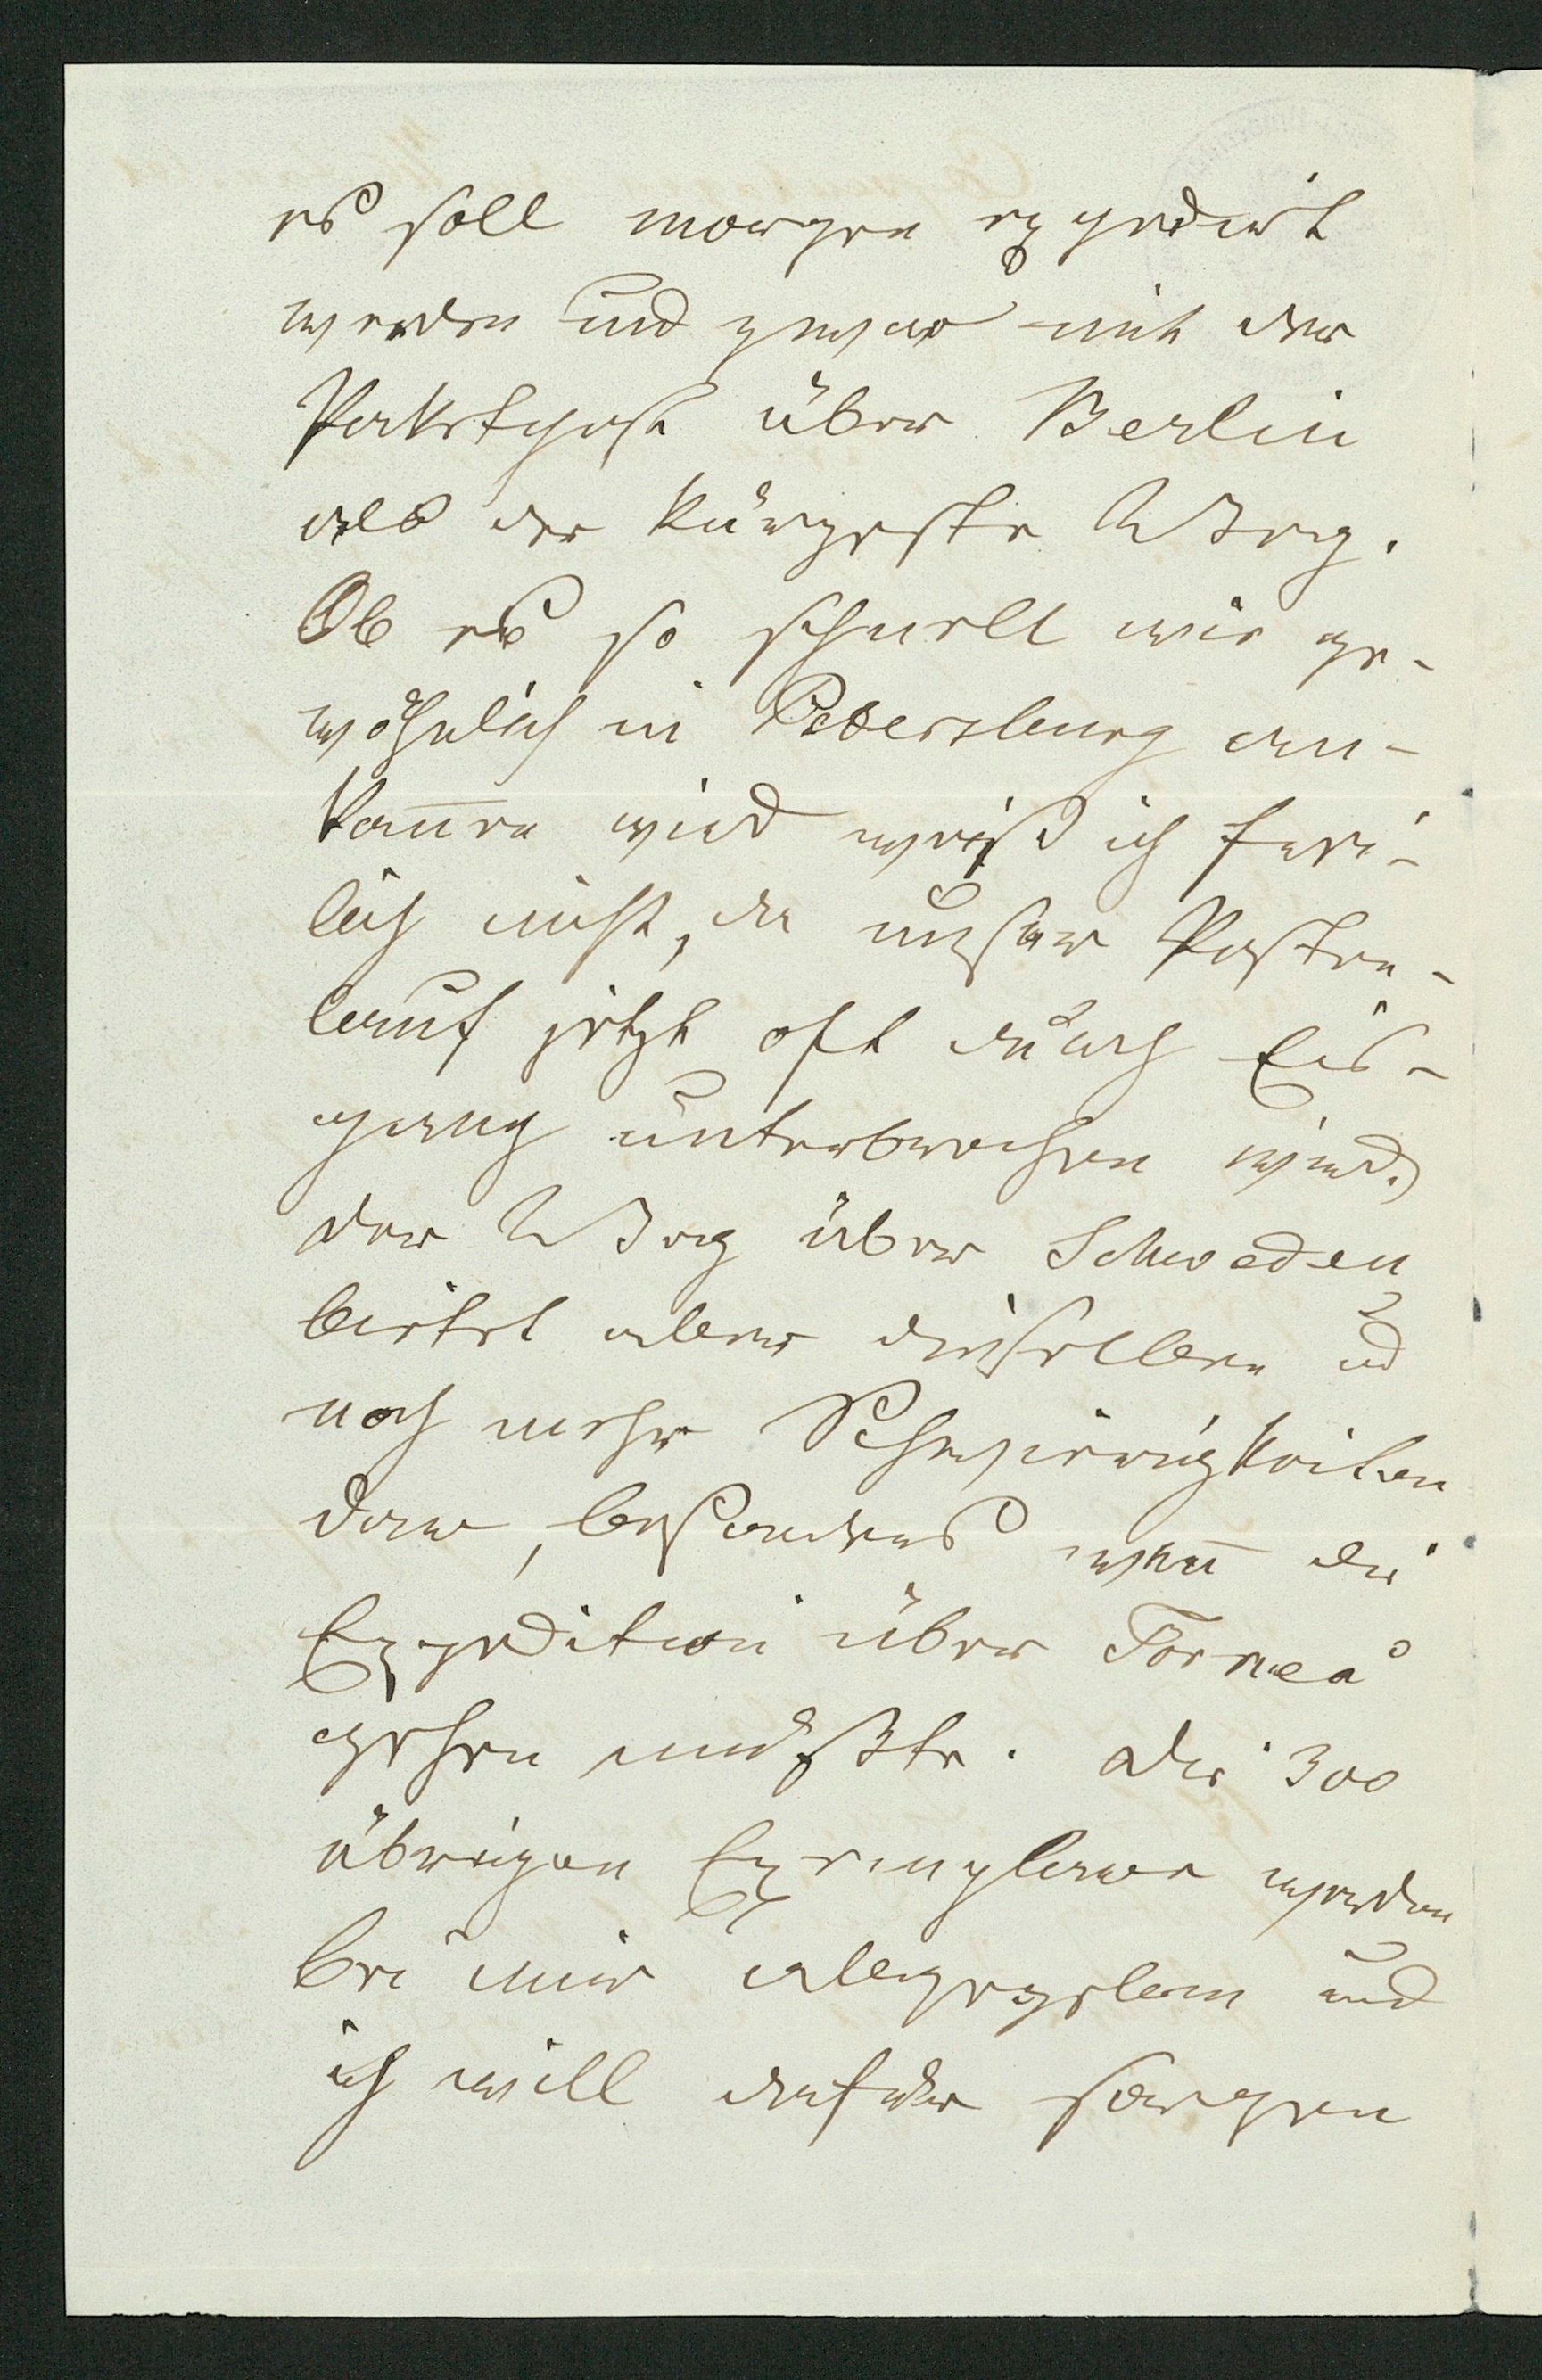 es soll morgen expedirt
werden und zwar mit der
Paketpost über Berlin
als der kürzeste Weg.
Ob es so schnell wie ge-
wöhnlich in Petersburg an-
kom̄en wird weiß ich frei-
lich nicht, da unser Posten-
lauf jetzt oft durch Eis-
gang unterbrochen wird.
der Weg über Schweden
bietet aber dieselben ud
noch mehr Schwierigkeiten
dar, besonders wen̄ die
Expedition über Torneå
gehen müßte. Die 300
übrigen Exemplare werden
bei mir abgegeben und
ich will dafür sorgen